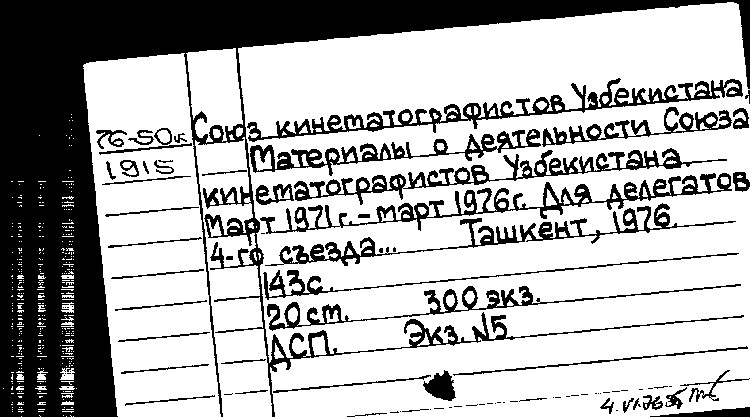 76-50к
1915
Союз кинематографистов Узбекистана.
Материалы о деятельности Союза
кинематографистов Узбекистана.
Март 1971г. - март 1976г. Для делегатов
4-го съезда... Ташкент, 1976.
143с.
20cm. 300 экз.
ДСП. Экз. №5.